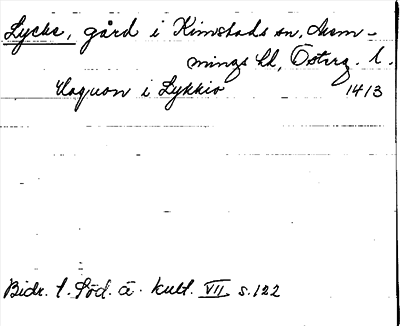 Lycke, gård i Kimstads sn, Mem-
mings hd, Österg. l.
Haquon i Lykkio 1413
Bidr. t. Söd. ä. kult. VII s. 122